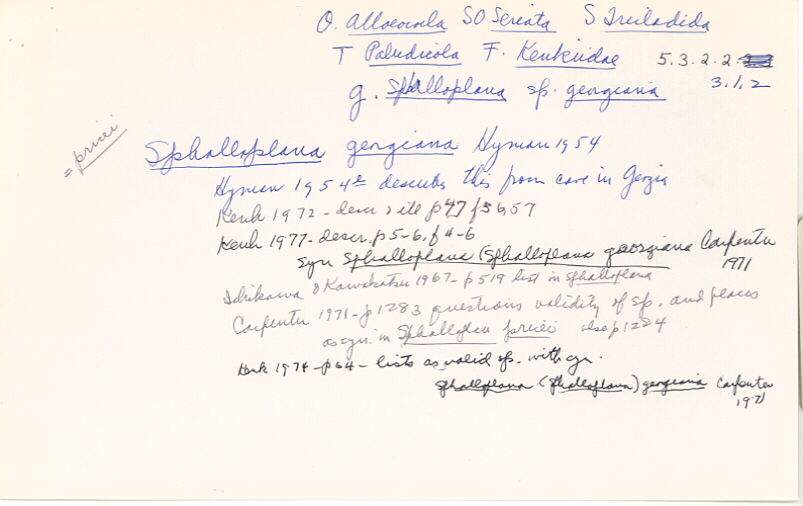 O. Alloeocoela SO Seriata S Tricladida
T Paludicola F. Kenkiidae 5.3.2.2
3.1.2
g. Sphalloplana sp. georgiana
= pricei
Sphalloplana georgiana Hyman 1954
Hyman 1954 describes this from cave in Georgia
Kenk 1972 - descr & ill p47 f56,57
Kenk 1977 - descr. p5-6, f4-6
Syn Sphalloplana (Sphalloplana georgiana Carpenter
1971
Ichikawa & Kawakatsu 1967 - p519 list in Sphalloplana
Carpenter 1971 - p1283 questions validity of sp. and places
as syn. in Sphalloplana pricei also p1284
Kenk 1974 - p64 - lists as valid sp. with syn.
Sphalloplana (Sphalloplana) georgiana Carpenter
1971